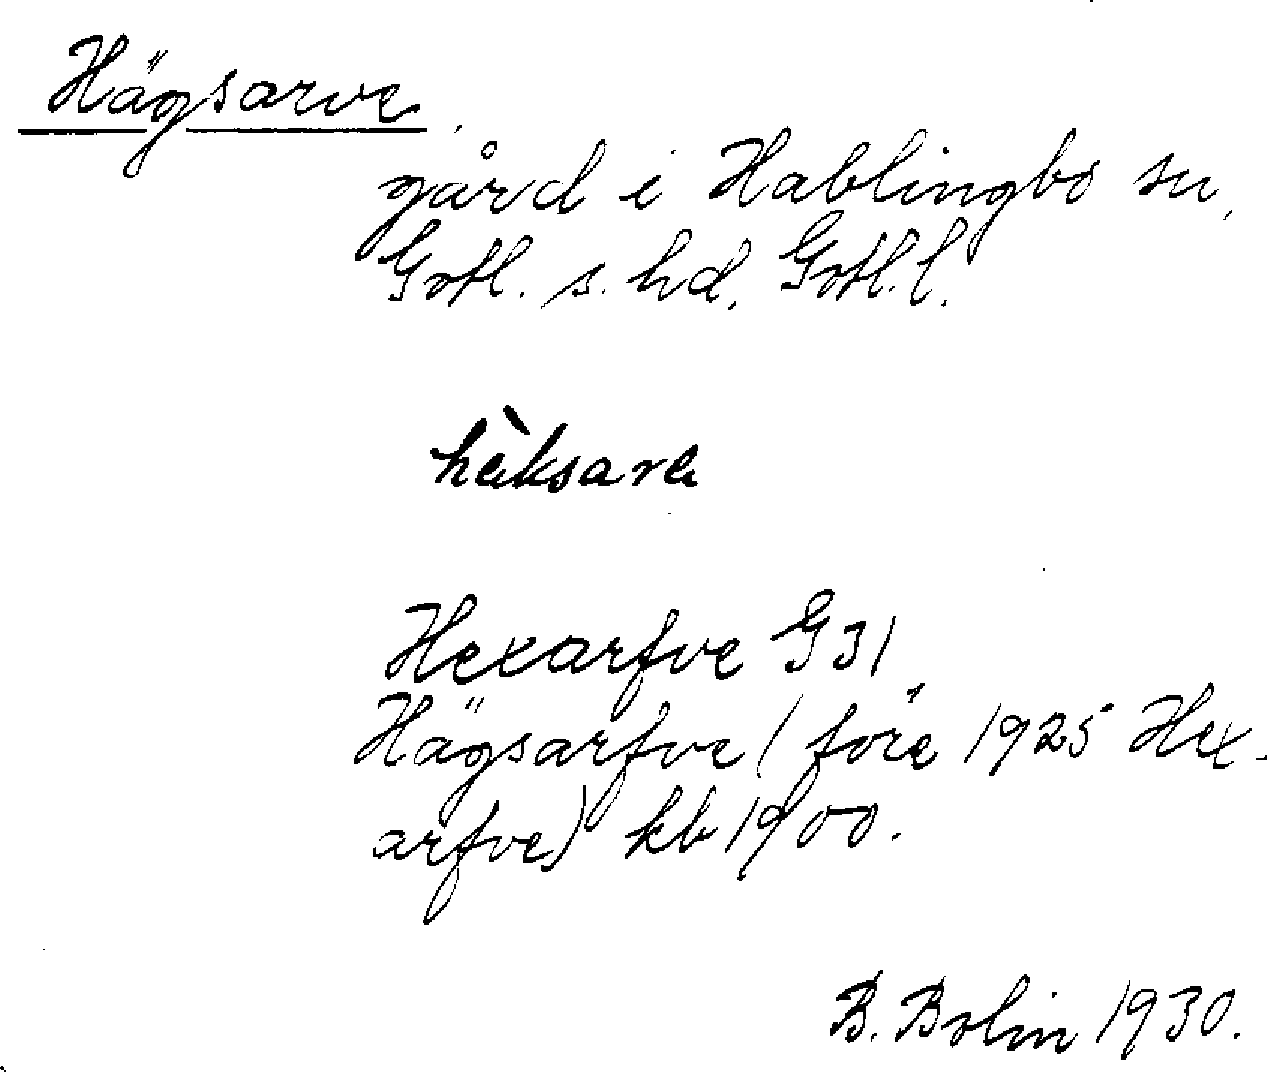 Hägsarve.
gård i Hablingbo sn,
Gotl. s. hd, Gotl. l.
hèksare
Hexarfve G 31,
Hägsarfve (före 1925 Hex-
arfve) kb 1900.
B. Bolin 1930.